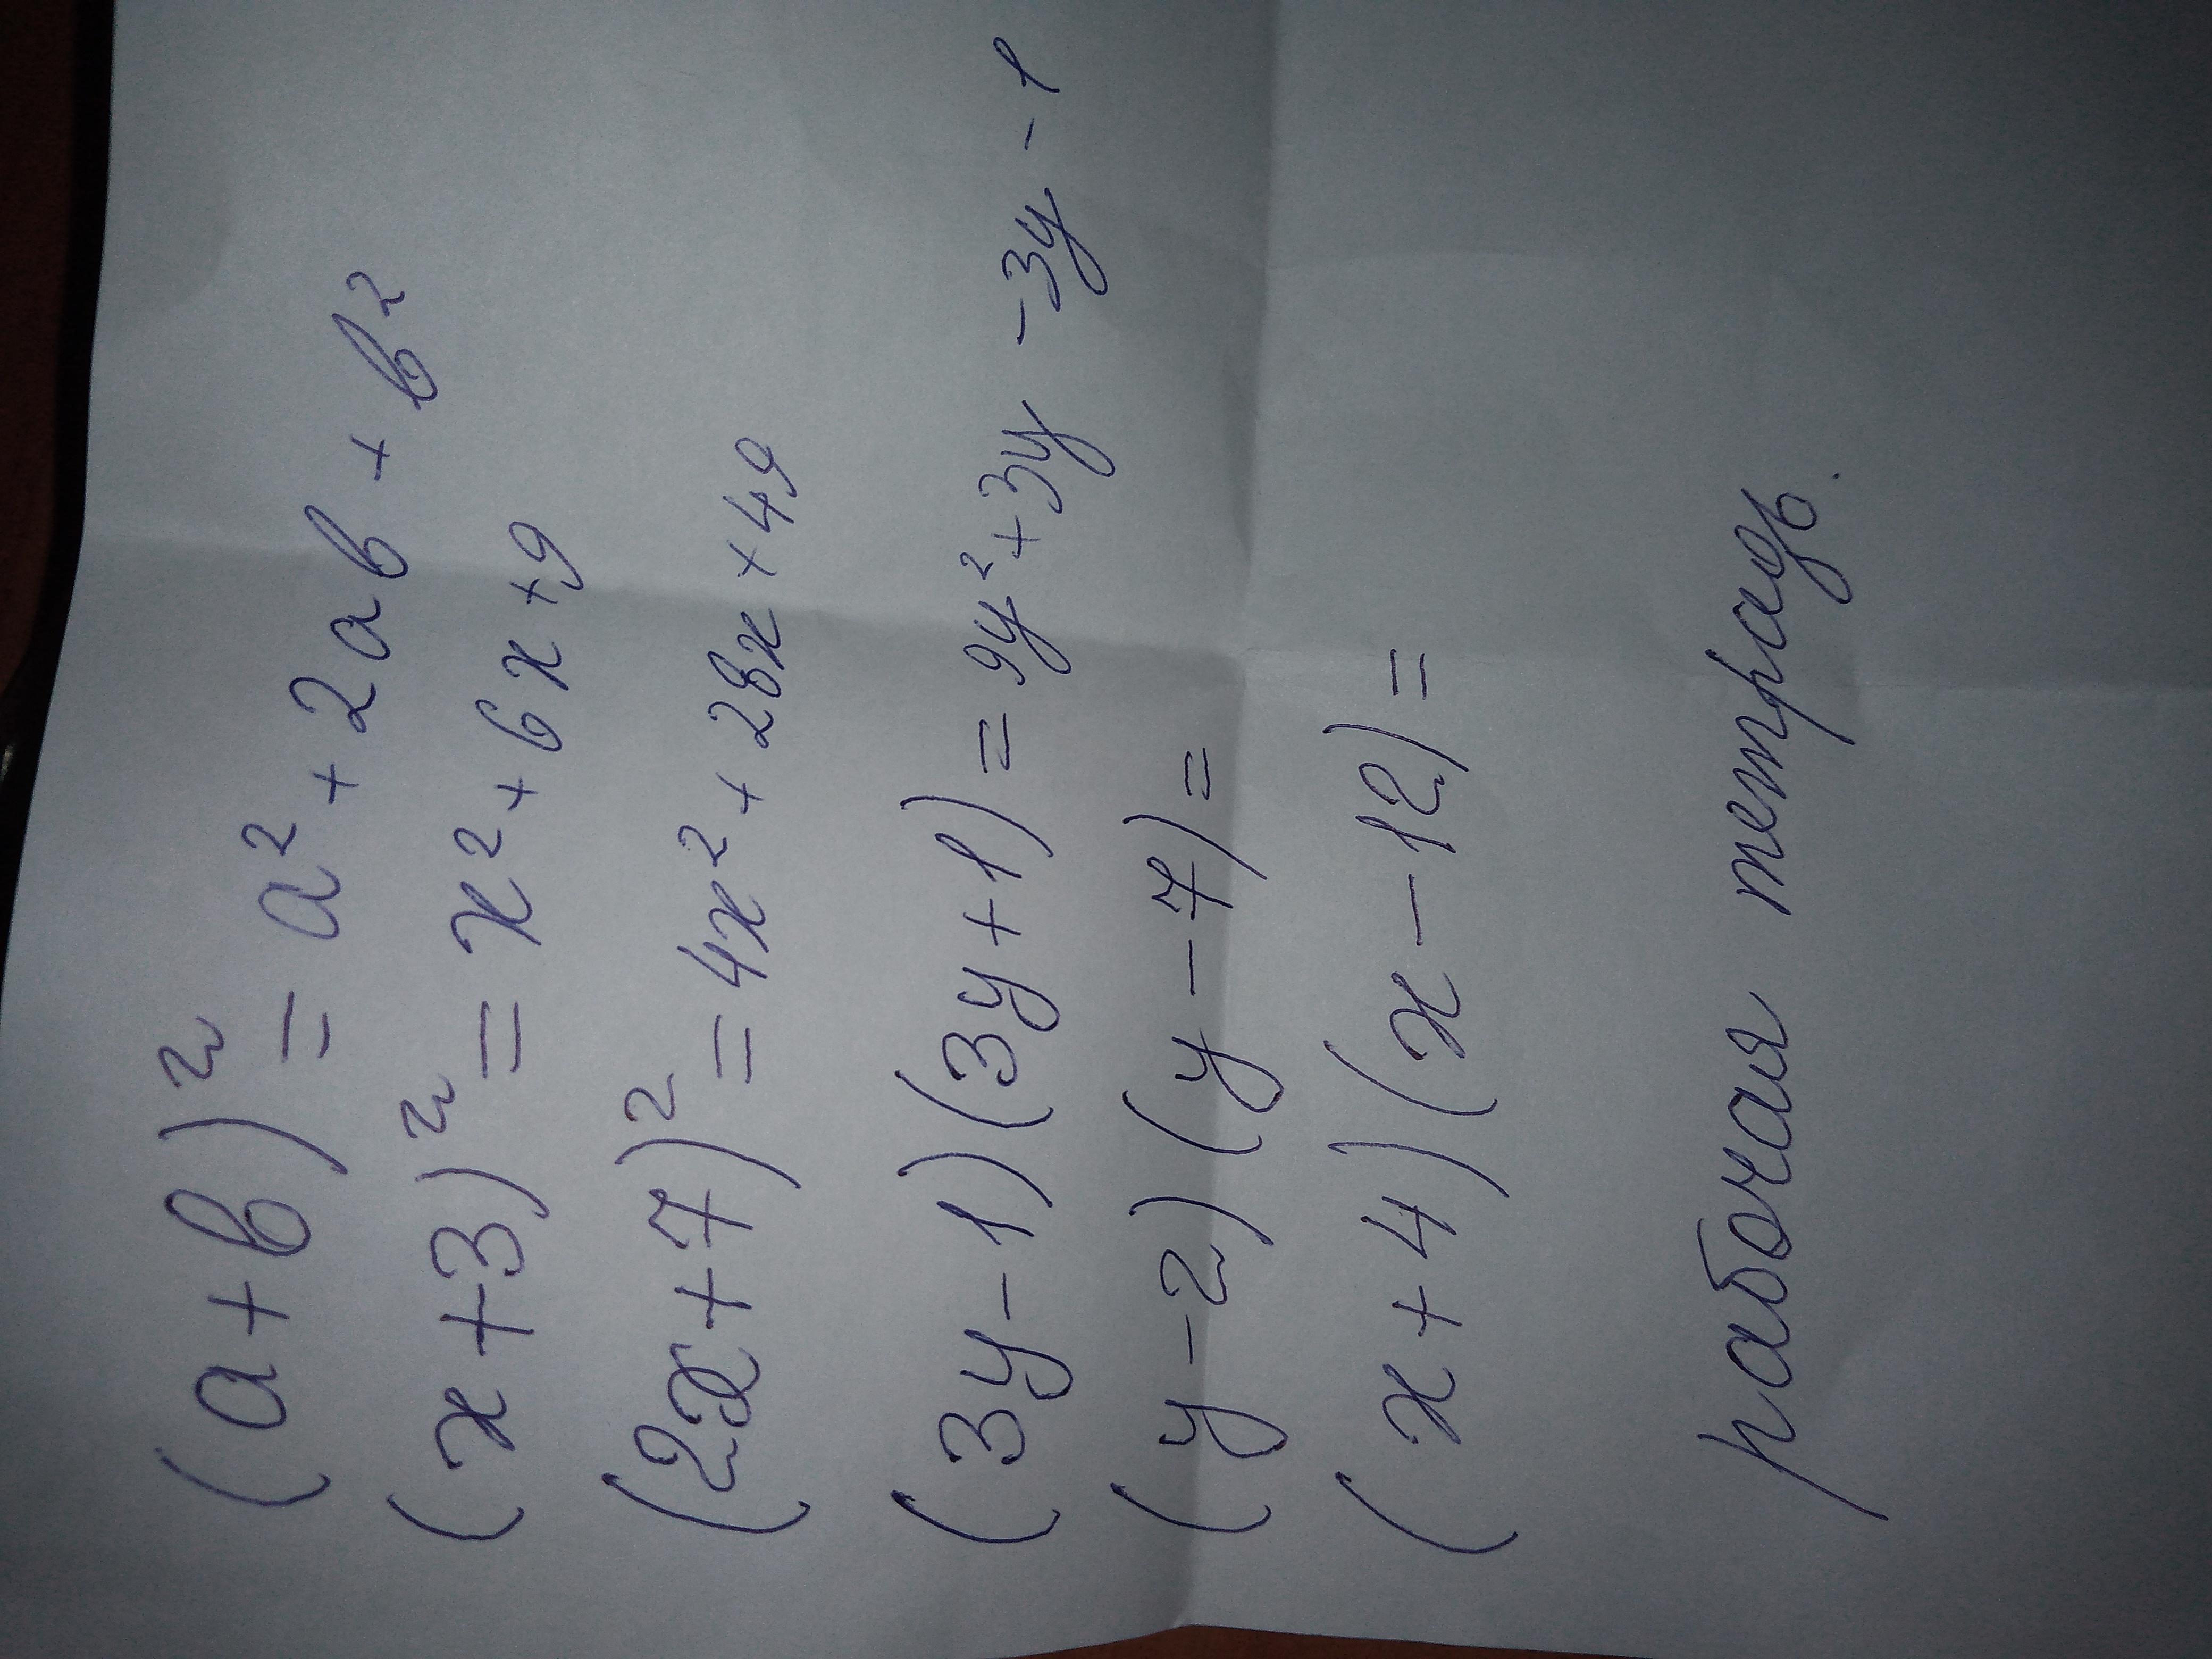 (a+b)² = a² + 2ab + b²
(x+3)² = x² + 6x + 9
(2x+7)² = 4x² + 28x + 49
(3y-1)(3y+1) = 9y² + 3y - 3y - 1
(y-2)(y-7) =
(x+4)(x-12) =
рабочая тетрадь.